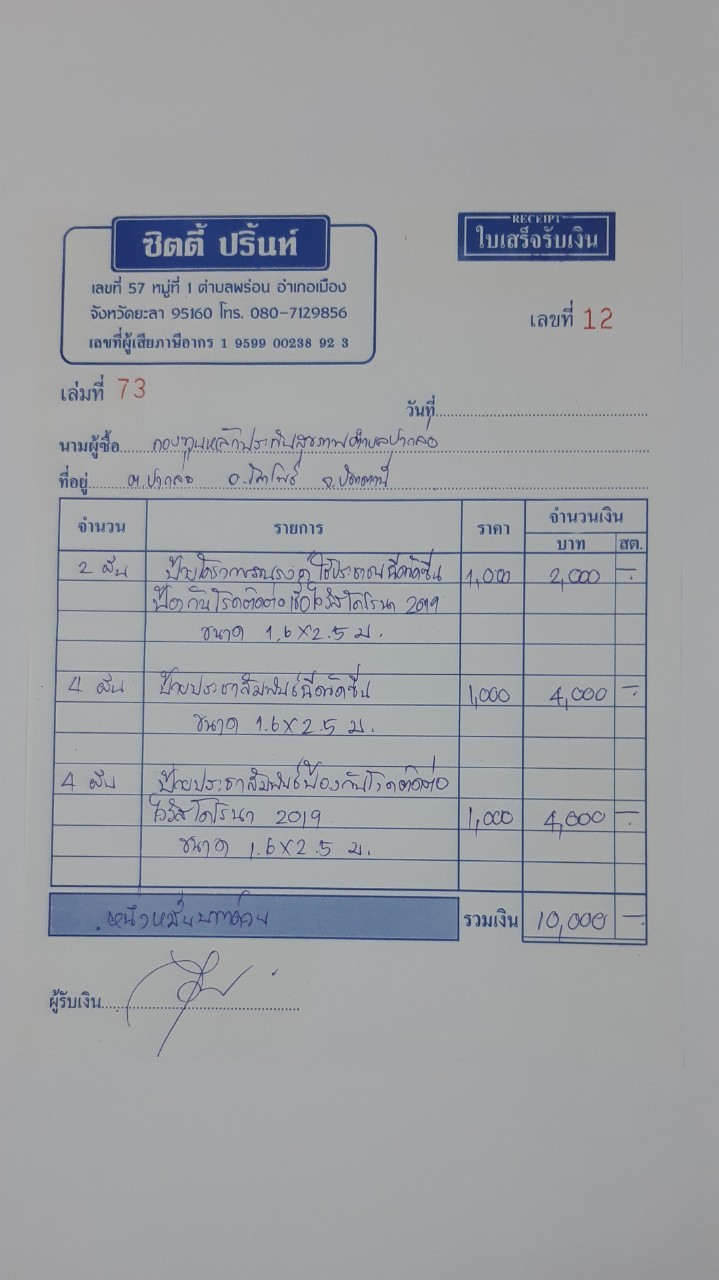 ซิตตี้ ปริ้นท์
เลขที่ 57 หมู่ที่ 1 ตำบลพร่อน อำเภอเมือง
จังหวัดยะลา 95160 โทร. 080-7129856
เลขที่ผู้เสียภาษีอากร 1 9599 00238 92 3
RECEIPT
ใบเสร็จรับเงิน
เลขที่ 12
เล่มที่ 73
วันที่
นามผู้ซื้อ กองทุนหลักประกันสุขภาพตำบลปากล่อ
ที่อยู่ ต.ปากล่อ อ.โคกโพธิ์ จ.ปัตตานี
จำนวน รายการ ราคา จำนวนเงิน
บาท สต.
2 ผืน ป้ายโครงการรณรงค์ให้ประชาชนฉีดวัคซีน 1,000 2,000 -
ป้องกันโรคติดต่อเชื้อไวรัสโคโรนา 2019
ขนาด 1.6×2.5 ม.
4 ผืน ป้ายประชาสัมพันธ์ฉีดวัคซีน 1,000 4,000 -
ขนาด 1.6×2.5 ม.
4 ผืน ป้ายประชาสัมพันธ์ป้องกันโรคติดต่อ
ไวรัสโคโรนา 2019 1,000 4,000 -
ขนาด 1.6×2.5 ม.
หนึ่งหมื่นบาทถ้วน รวมเงิน 10,000 -
ผู้รับเงิน